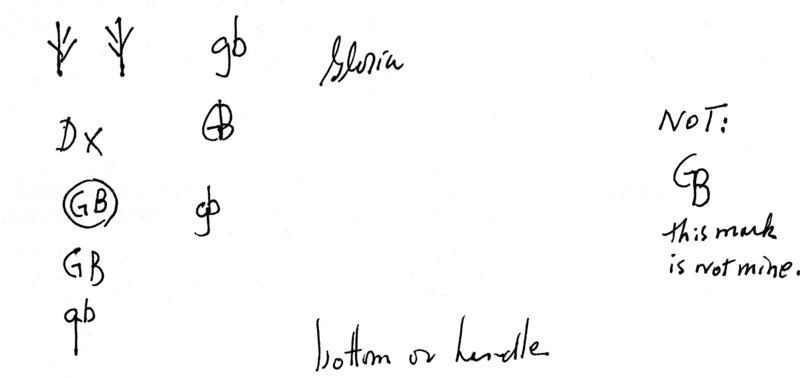 gb
Gloria
DX
GB
GB
gb
GB
gb
bottom or handle
NOT:
GB
this mark
is not mine.